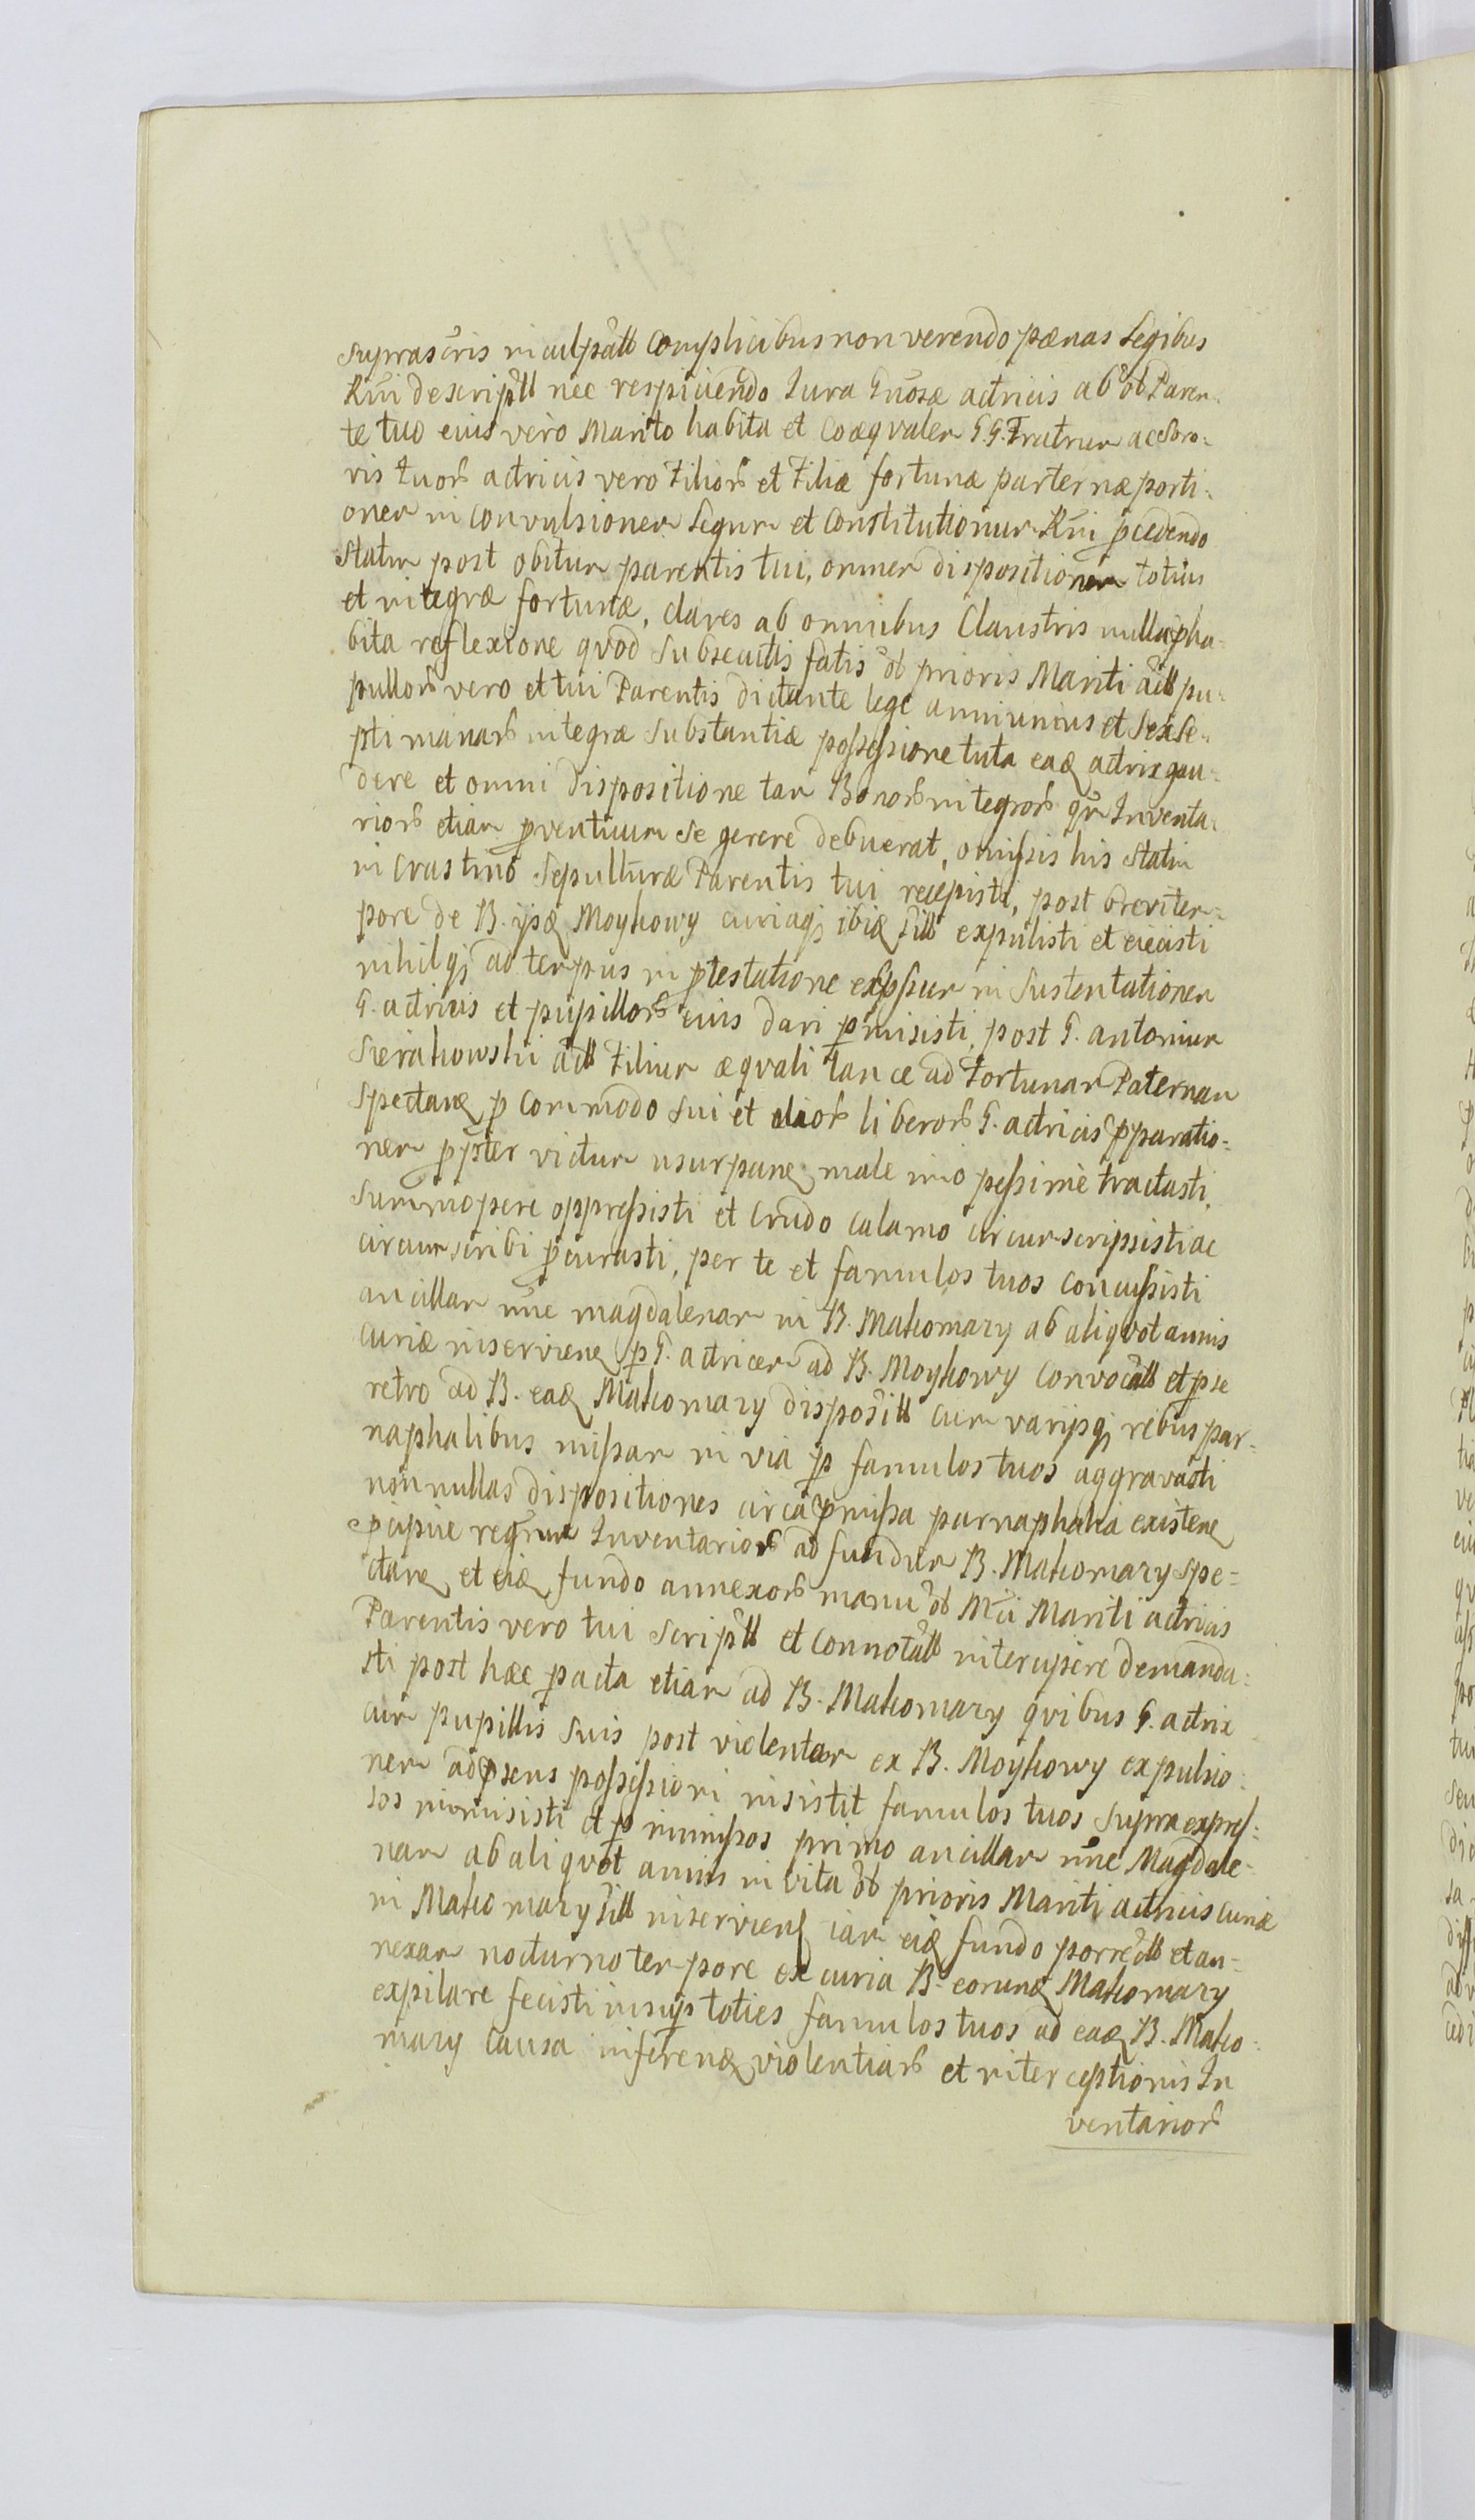 supras̃cris inculpãtt complicibus non verendo pænas Legibus
Rñi descrip̃tt nec respiciendo Jura Gñosæ actricis ab õb Paren-
te tuo eius verò Marito habita et Coæqvalem G.G. Fratrum ac Soro-
ris tuorũ actricis vero Filiorũ et Filiæ fortunæ parternæ porti-
onem in convulsionem Legum et Constitutionum Rñi p̱cedendo
Statim post obitum parentis tui, omnem dispositionem totius
et integræ fortunæ, claves ab omnibus Claustris nulla p̱ha-
bita reflexione qvod subsecutis fatis õb prioris Mariti ac̃tt pu-
pullorũ vero et tui Parentis dictante lege anni unius et Sex Se-
ptimanarũ integræ substantiæ poſseſsione tuta eaq̨ actrix gau-
dere et omni dispositione tam Bonorũ integrorũ qm̃ Inventa-
riorũ etiam p̱ventuum se gerere debuerat, omiſsis his statim
in crastino Sepulturæ Parentis tui recepisti, post brevi tem-
pore de B. ijsq̨ Moykowy curiaqȝ ibiq̨ sitt expulisti et eiecisti
nihilqȝ ad tempus in p̱testatione exp̱ſsum in sustentationem
G. actricis et pupillorũ eius dari p̱misisti, post G. antonium
Sierakowski actt Filium æqvali lance ad Fortunam Paternam
Spectanq̨ p̱ commodo sui et aliorũ liberorũ G. actricis p̱paratio-
nem p̱p̃ter victum usurpanq̨ male imo peſsimè tractasti,
summopere oppreſsisti et Crudo calamo circumscripsisti ac
circumscribi p̱curasti, per te et famulos tuos concuſsisti
ancillam nñe magdalenam in B. Makomazy ab aliqvot annis
Curiæ inservienq̨ p̱ G. actricem ad B. Moykowy Convocãtt et p̱ se
retro ad B. eaq̨ Makomazy disposĩtt cum varijsqȝ rebus par-
naphalibus miſsam in via p̱ famulos tuos aggravasti
nonnullas dispositiones circa p̱miſsa parnaphalia existenq̨
p̱cipue regr̃um Inventariorũ ad fundum B. Makomazy spe-
ctanq̨ et eiq̨ fundo annexorũ manu õb Mc̃i Mariti actricis
Parentis vero tui scrip̃tt et Connotãtt intercipere demanda-
sti post hæc p̱acta etiam ad B. Makomazy qvibus G. actrix
cum pupillis suis post violentam ex B. Moykowy expulsio-
nem ad p̱sens poſseſsioni insistit famulos tuos supraexpreſ-
sos immisisti et p̱ immiſsos primo ancillam nñe Magdale-
nam ab aliqvot annis in vita õb prioris Mariti actricis curiæ
in Makomazy sitt inserviens iam eiq̨ fundo porrectt et an-
nexam nocturno tempore ex curia B. eorunq̨ Makomazy
expilare fecisti insup̱ toties famulos tuos ad eaq̨ B. Mako-
mazy causa inferenq̨ violentiarũ et interceptionis In
ventariorũ